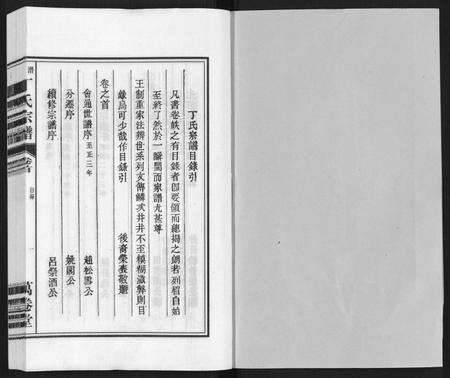 丁氏宗譜目錄引
凡書卷帙之有目錄者即要領而總揭之閱者列眉自始
至終了然於一瞬間而家譜尤甚尊
王制重家法辨世系列女傳鱗次井井不至模糊
錄烏可少哉作目錄引
後裔榮表敬譔
卷之首
會通世譜序 至正三年 趙松雪公
分遷序 姚閣公
續修宗譜序 呂祭酒公
丁氏宗譜
卷首
目錄
一
萬卷堂